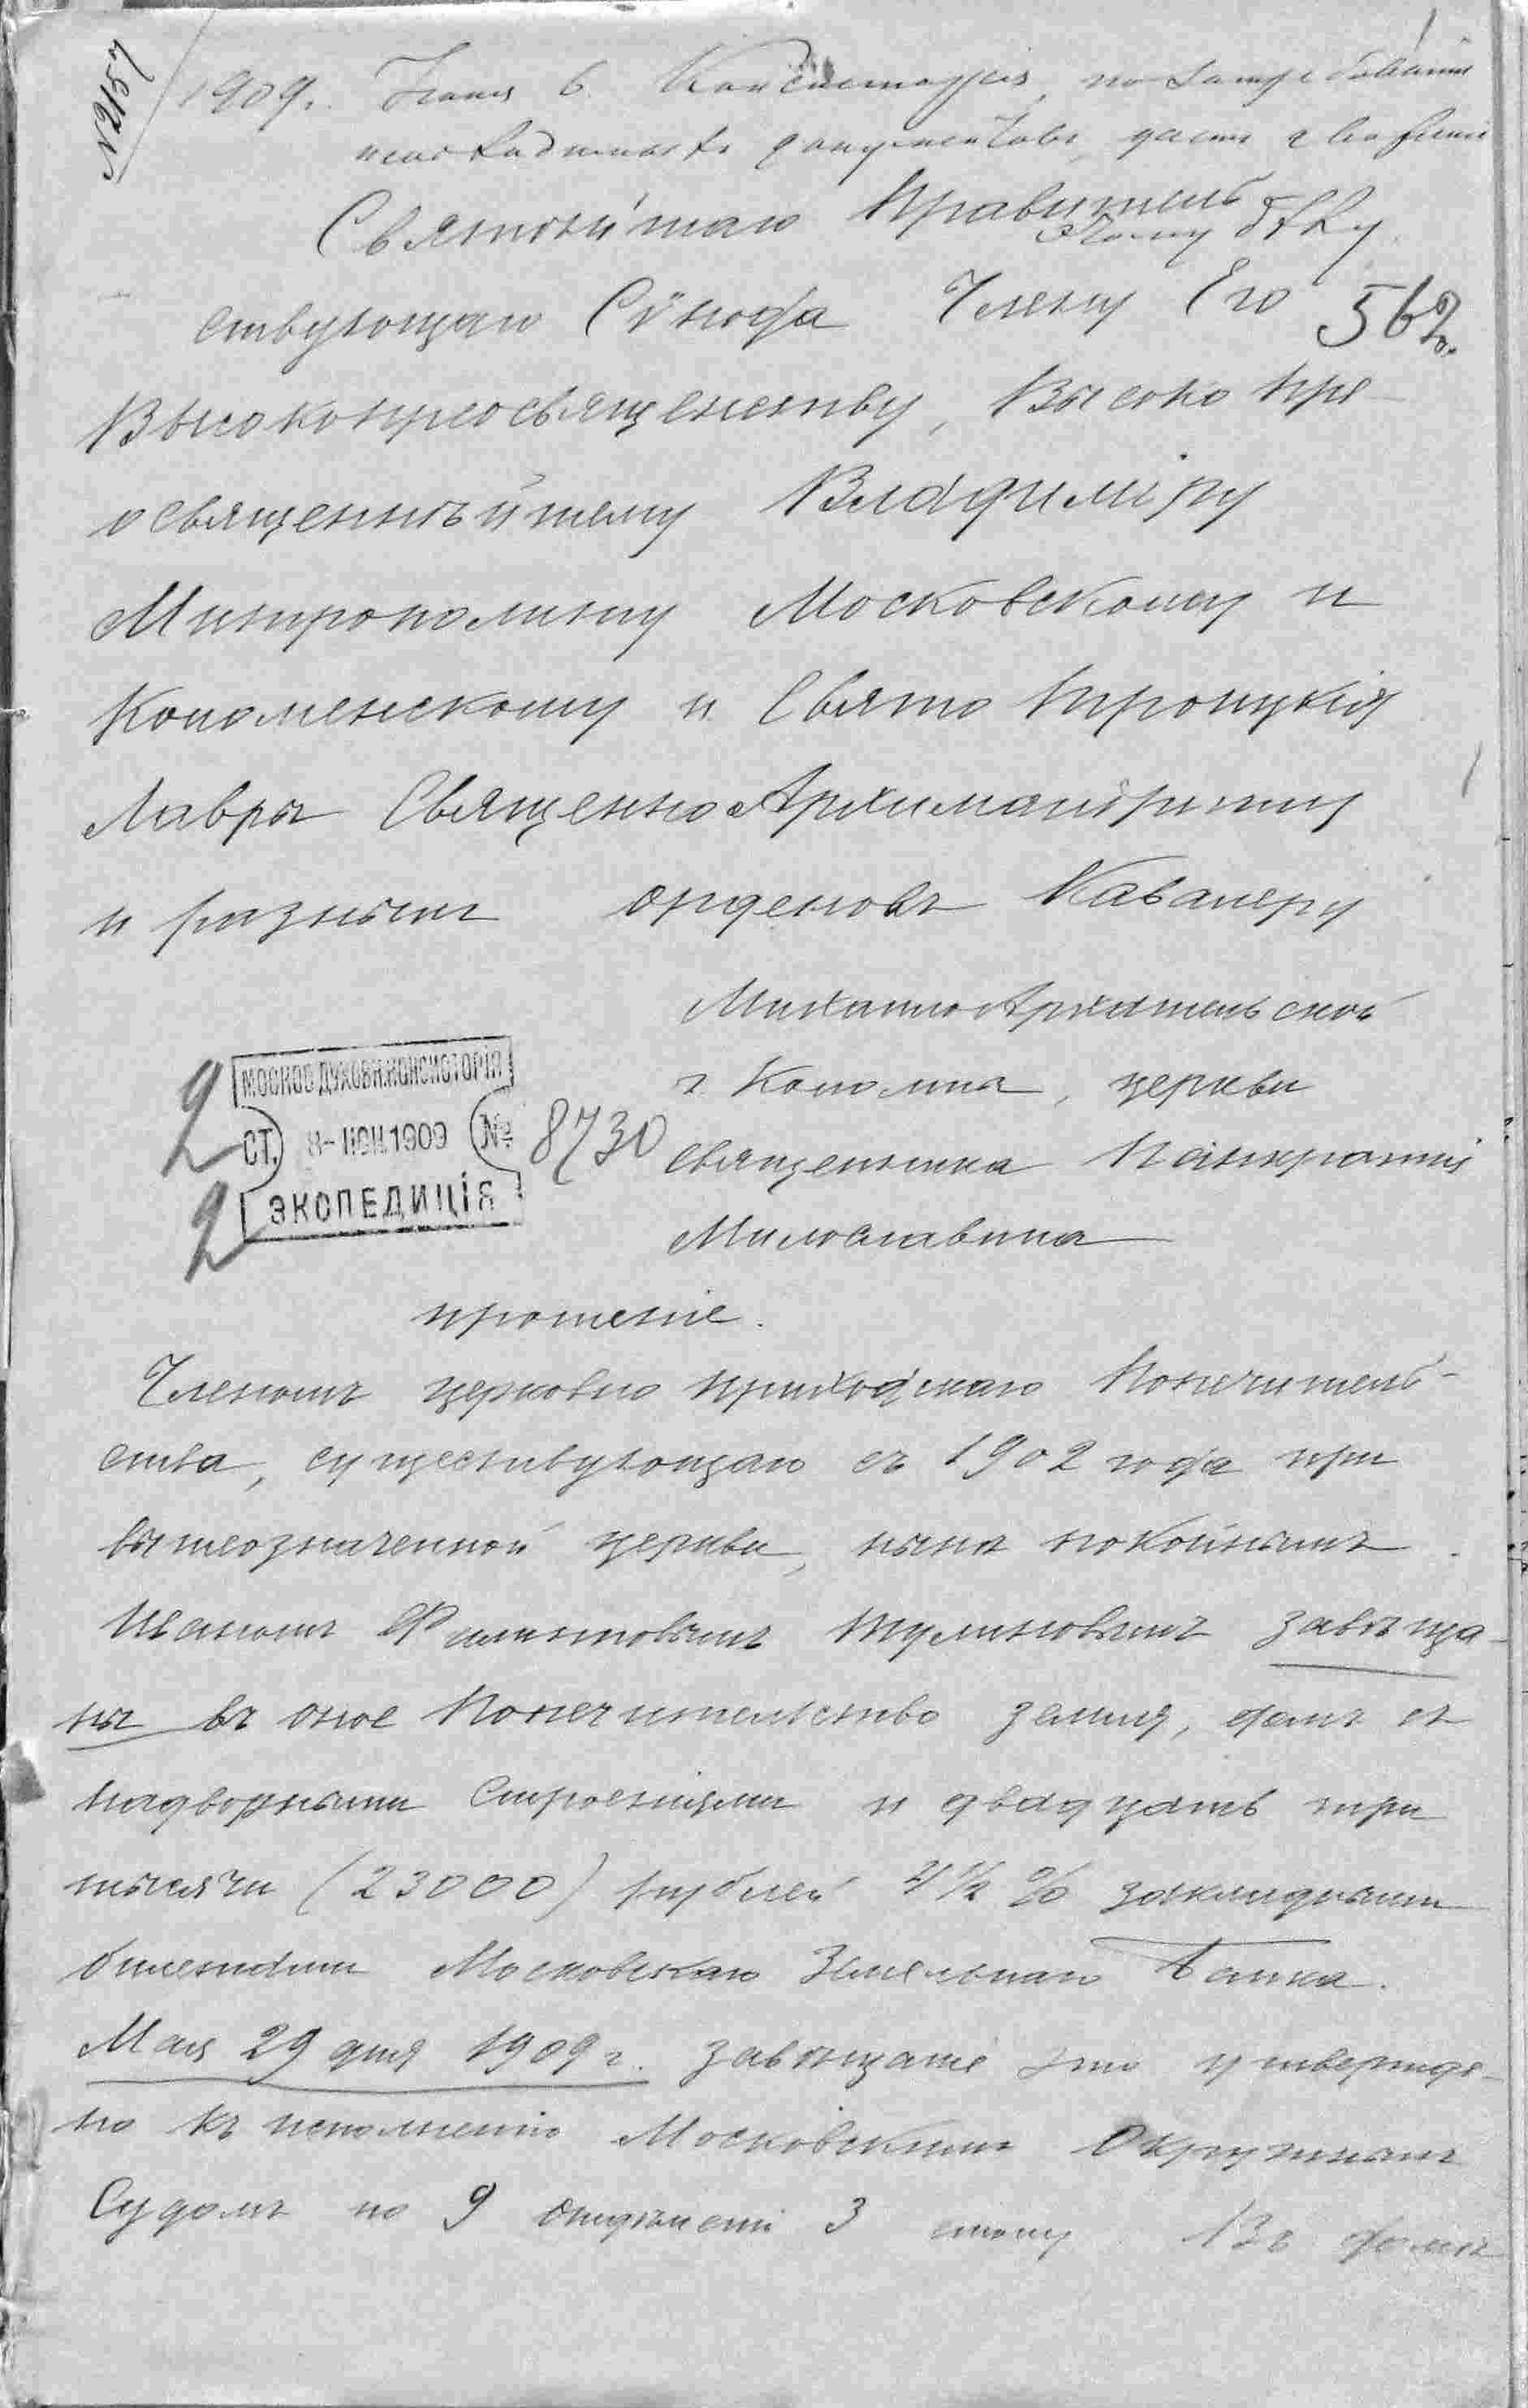 № 2157
1909. Іюня 6. Консисторія, по
документовъ,
Святѣйшаго Правитель
этому дѣлу
ствующаго Сѵнода Члену Его 562.
Высокопреосвященству, Высокопре-
освященнѣйшему Владиміру
Митрополиту Московскому и
Коломенскому и Свято Троицкія
Лавры СвященноАрхимандриту
и разныхъ орденовъ Кавалеру
МихаилоАрхангельской
г. Коломна, церкви
священника Панкратія
Милославина
МОСКОВ. ДУХОВН. КОНСИСТОРІЯ
СТ. 8-ІЮН.1909 № 8730
ЭКСПЕДИЦІЯ
2
2
прошеніе.
Членомъ церковно приходскаго Попечитель-
ства, существующаго съ 1902 года при
вышеозначенной церкви, нынѣ покойнымъ
Иваномъ Филипповымъ Тулиновымъ завѣща-
ны въ оное Попечительство земля, домъ съ
надворными строеніями и двадцать три
тысячи (23000) рублей 4½ % закладными
билетами Московскаго Земельнаго Банка.
Мая 29 дня 1909 г. завѣщаніе это утвержде-
но къ исполненію Московскимъ Окружнымъ
Судомъ по 9 отдѣленію 3 столу